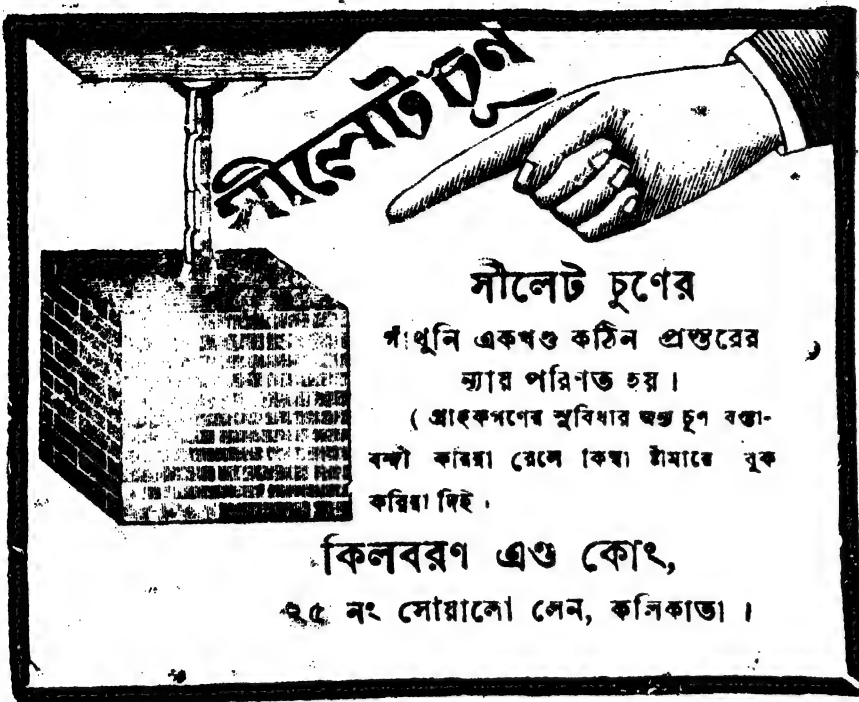 সীলেট চূণ
সীলেট চুণের
গাঁথুনি একখণ্ড কঠিন প্রস্তরের
ন্যায় পরিণত হয় ।
( গ্রাহকগণের সুবিধার জন্য চুণ বস্তা-
বন্দী করিয়া রেলে কিম্বা ষ্টীমারে বুক
করিয়া দিই ।
কিলবরণ এণ্ড কোং,
নং সোয়ালো লেন, কলিকাতা ।